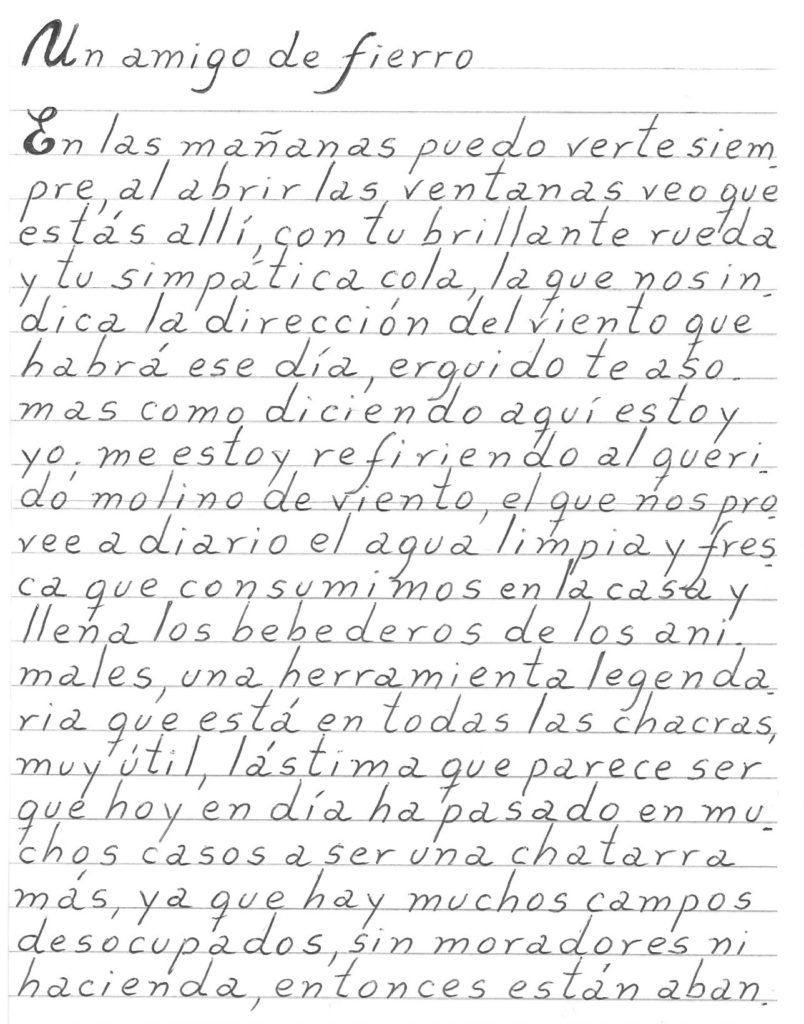 Un amigo de fierro
En las mañanas puedo verte siem_
pre, al abrir las ventanas veo que
estás allí, con tu brillante rueda
y tu simpática cola, la que nos in_
dica la dirección del viento que
habrá ese día, erguido te aso_
mas como diciendo aquí estoy
yo. me estoy refiriendo al queri_
do molino de viento, el que nos pro_
vee a diario el agua limpia y fres_
ca que consumimos en la casa y
llena los bebederos de los ani_
males, una herramienta legenda_
ria que está en todas las chacras,
muy útil, lástima que parece ser
que hoy en día ha pasado en mu_
chos casos a ser una chatarra
más, ya que hay muchos campos
desocupados, sin moradores ni
hacienda, entonces están aban_